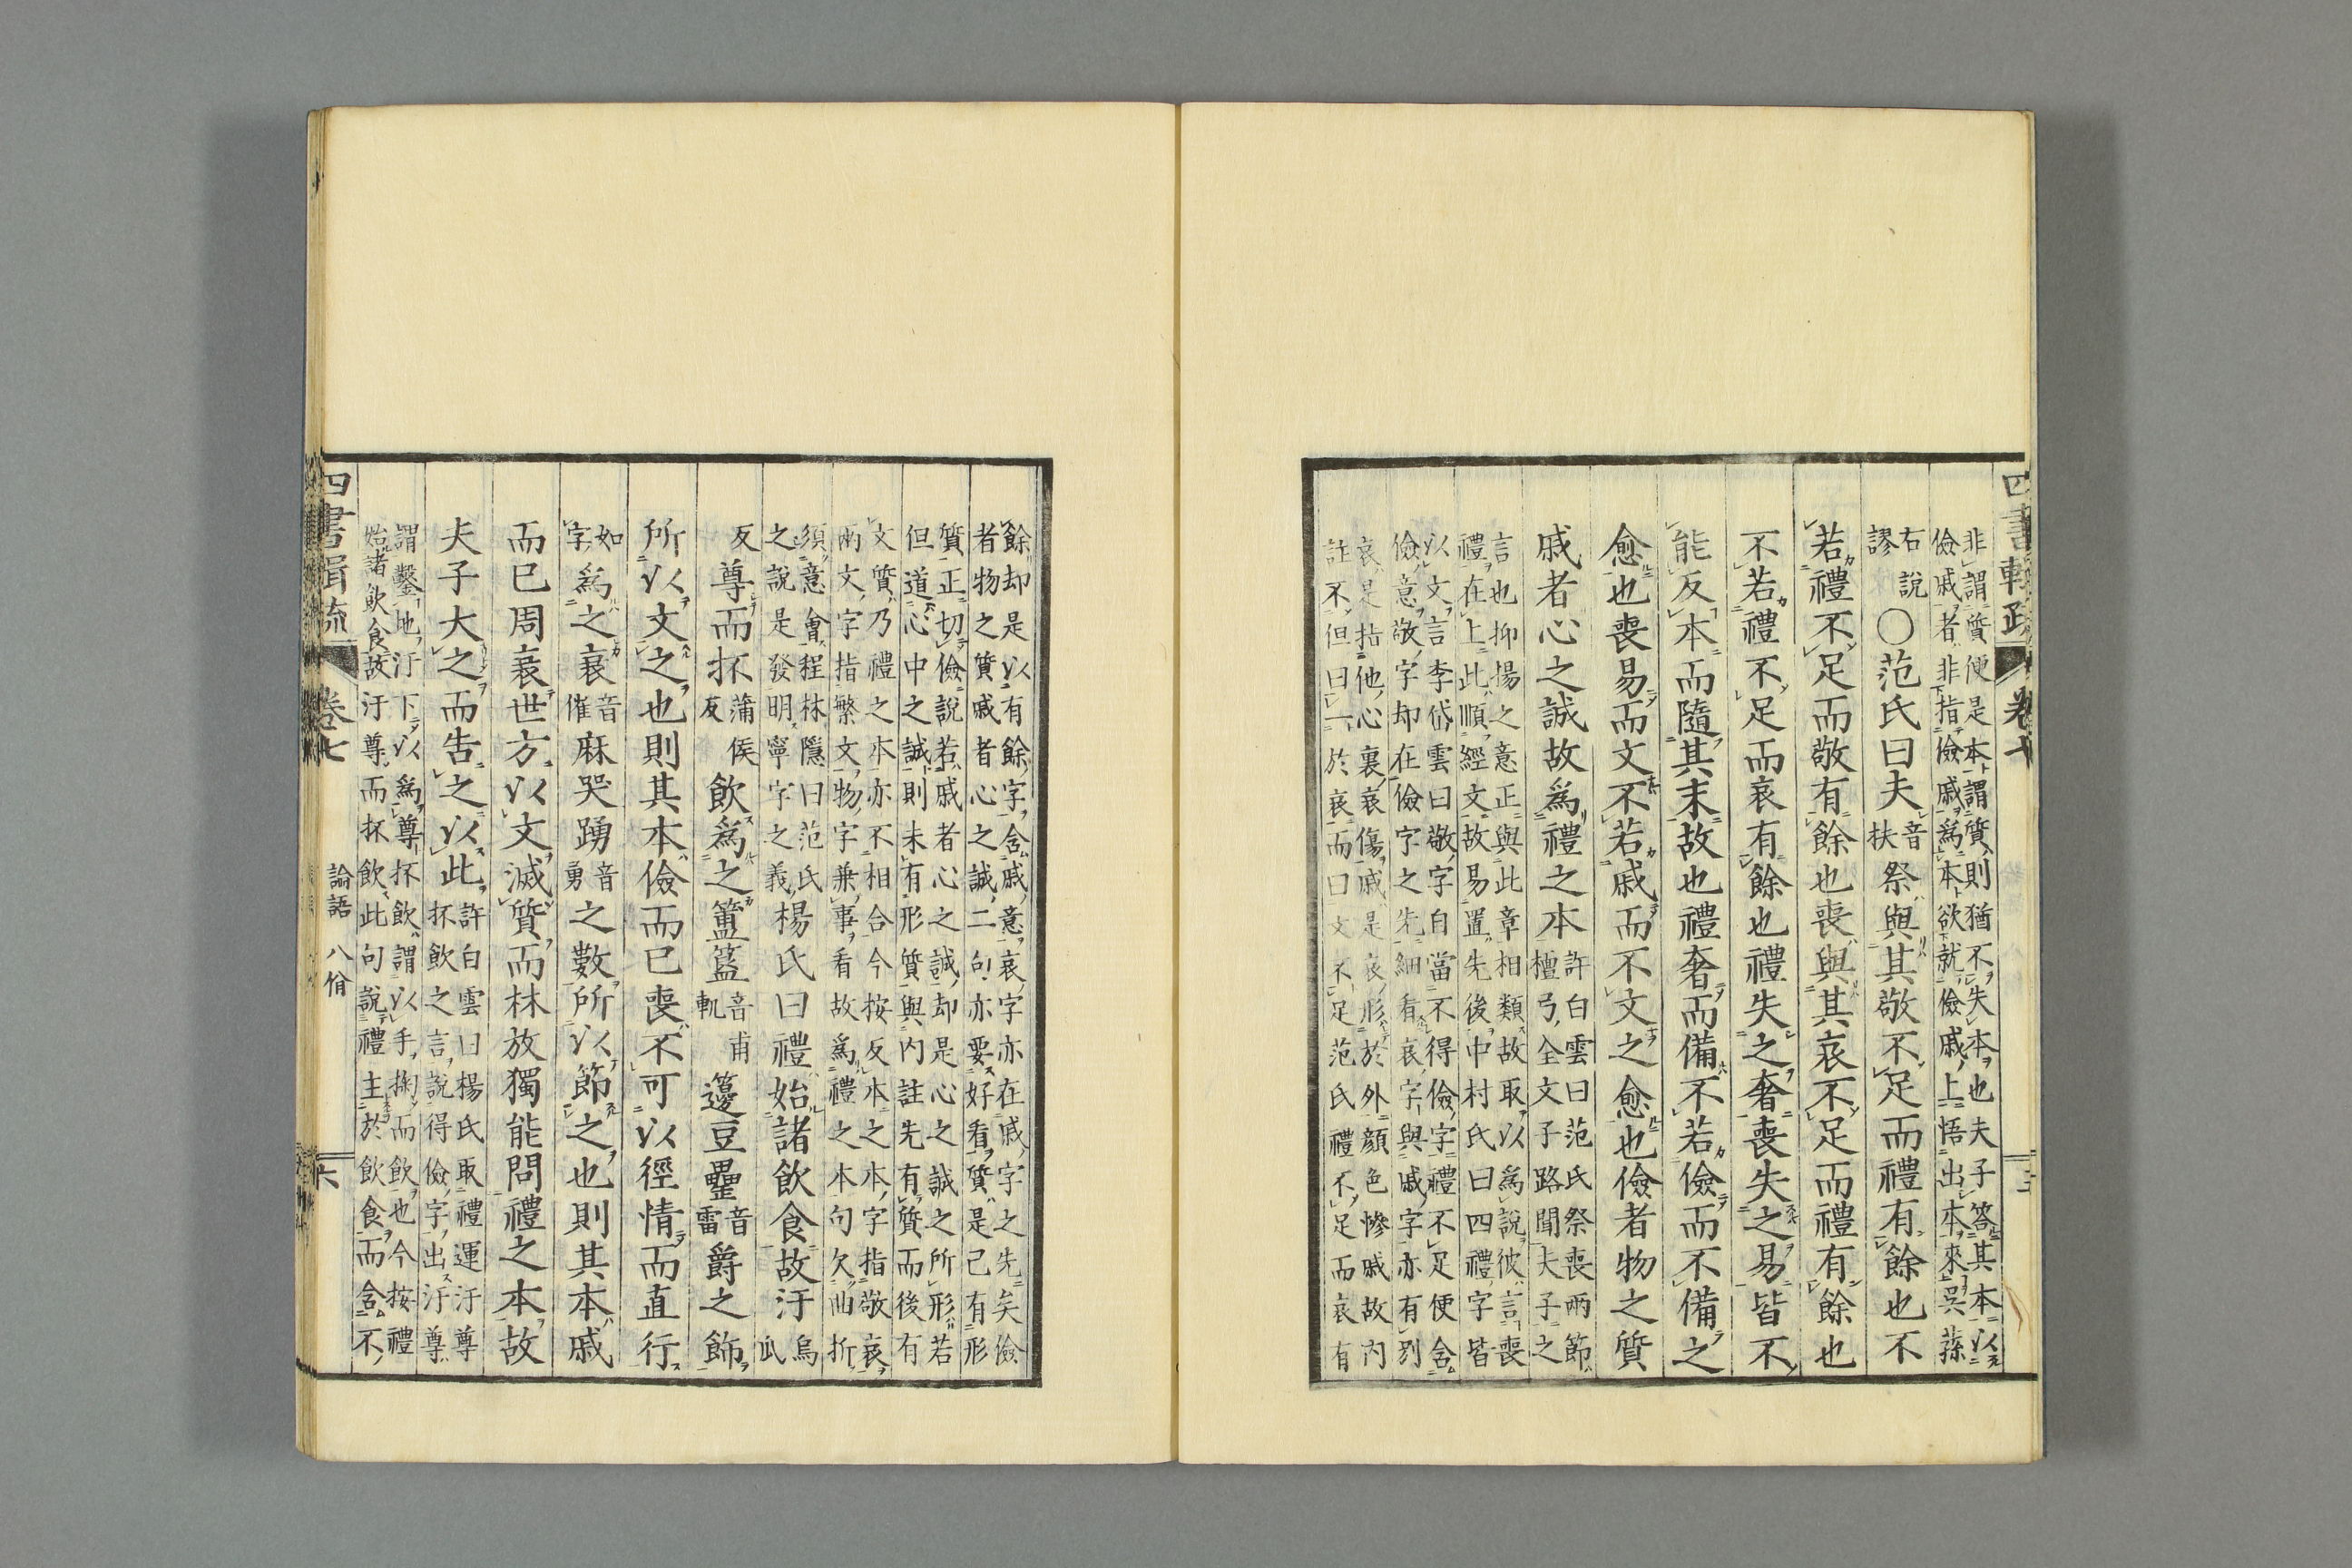 非謂質便是本謂質則猶不失本也夫子答其本以
儉戚者非指儉戚爲本欲就儉戚上悟出本來吳蓀
右說
謬
○范氏曰夫音扶祭與其敬不足而禮有餘也不
若禮不足而敬有餘也喪與其哀不足而禮有餘也
不若禮不足而哀有餘也禮失之奢喪失之易皆不
能反本而隨其末故也禮奢而備不若儉而不備之
愈也喪易而文不若戚而不文之愈也儉者物之質
戚者心之誠故爲禮之本
許白雲曰范氏祭喪兩節
檀弓全文子路聞夫子之
言也抑揚之意正與此章相類故取以爲說彼言喪
禮在上此順經文故易置先後中村氏曰四禮字皆
以文言李岱雲曰敬字自當不得儉字禮不足便含
儉意敬字却在儉字之先細看哀字與戚字亦有別
哀是指他心裏哀傷戚是哀形於外顏色慘戚故內
註不但曰一於哀而曰文不足范氏禮不足而哀有
四書輯疏 卷七
餘却是以有餘字含戚意哀字亦在戚字之先矣儉
者物之質戚者心之誠二句亦要好看質是已有形
質正切儉說若戚者心之誠却是心之誠之所形若
但道心中之誠則未有形質與內註先有質而後有
文質乃禮之本亦不相合今按反本之本字指敬哀
兩文字指繁文物字兼事看故爲禮之本句欠曲折
須意會程林隱曰范氏
之說是發明寧字之義
楊氏曰禮始諸飲食故汙烏瓜
反尊而抔蒲侯反飲爲之簠簋音甫軌籩豆罍音雷爵之飾
所以文之也則其本儉而已喪不可以徑情而直行
如字爲之衰音催麻哭踊音勇之數所以節之也則其本戚
而已周衰世方以文滅質而林放獨能問禮之本故
夫子大之而告之以此
許白雲曰楊氏取禮運汙尊
抔飲之言說得儉字出汙尊
謂鑿地汙下以爲尊抔飲謂以手掬而飲也今按禮
始諸飲食故汙尊而抔飲此句說禮主於飲食而含不
四書輯疏 卷七 論語 八佾 六